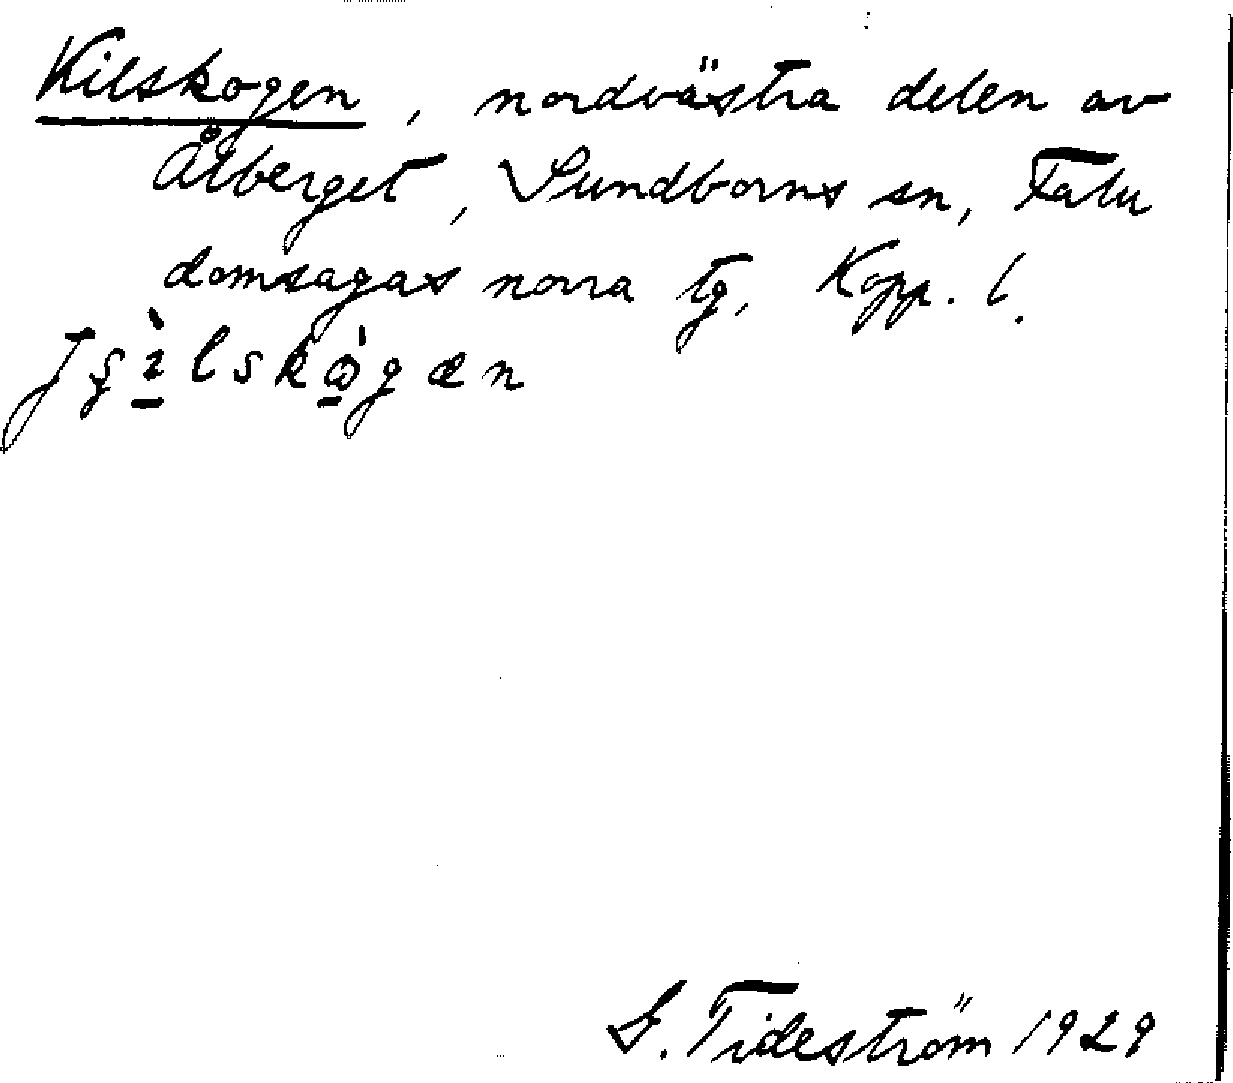 Kilskogen, nordvästra delen av
Ålberget, Sundborns sn, Falu
domsagas norra tg, Kopp. l.
G. Tideström 1929